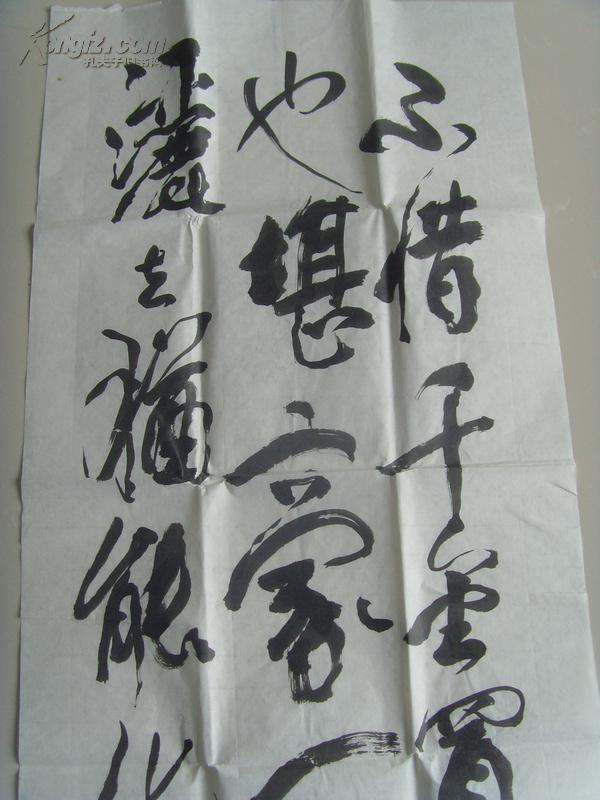 不惜千金買
也堪豪一
灑去猶能化
Kongfz.com
孔夫子旧书网